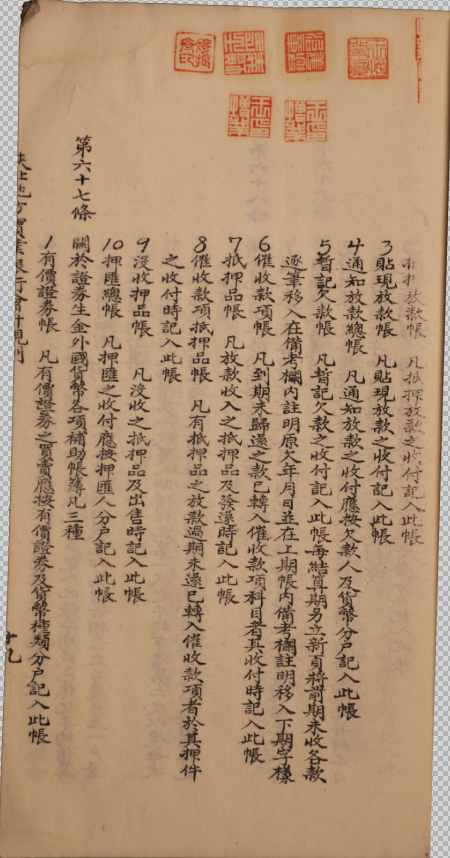 抵押放款帳　凡抵押放款之收付記入此帳
3 貼現放款帳　凡貼現放款之收付記入此帳
4 通知放款總帳　凡通知放款之收付應按欠款人及貨幣分戶記入此帳
5 暫記欠款帳　凡暫記欠款之收付記入此帳每結算期另立新頁將前期未收各款
逐筆移入在備考欄內註明原欠年月日並在上期帳內備考欄註明移入下期字樣
6 催收款項帳　凡到期未歸還之款已轉入催收款項科目者其收付時記入此帳
7 抵押品帳　凡放款收入之抵押品及發還時記入此帳
8 催收款項抵押品帳　凡有抵押品之放款過期未還已轉入催收款項者於其押件
之收付時記入此帳
9 沒收押品帳　凡沒收之抵押品及出售時記入此帳
10 押匯總帳　凡押匯之收付應按押匯人分戶記入此帳
第六十七條
關於證券生金外國貨幣各項補助帳簿凡三種
1 有價證券帳　凡有價證券之買賣應按有價證券及貨幣種類分戶記入此帳
地方實業銀行會計規則
十九